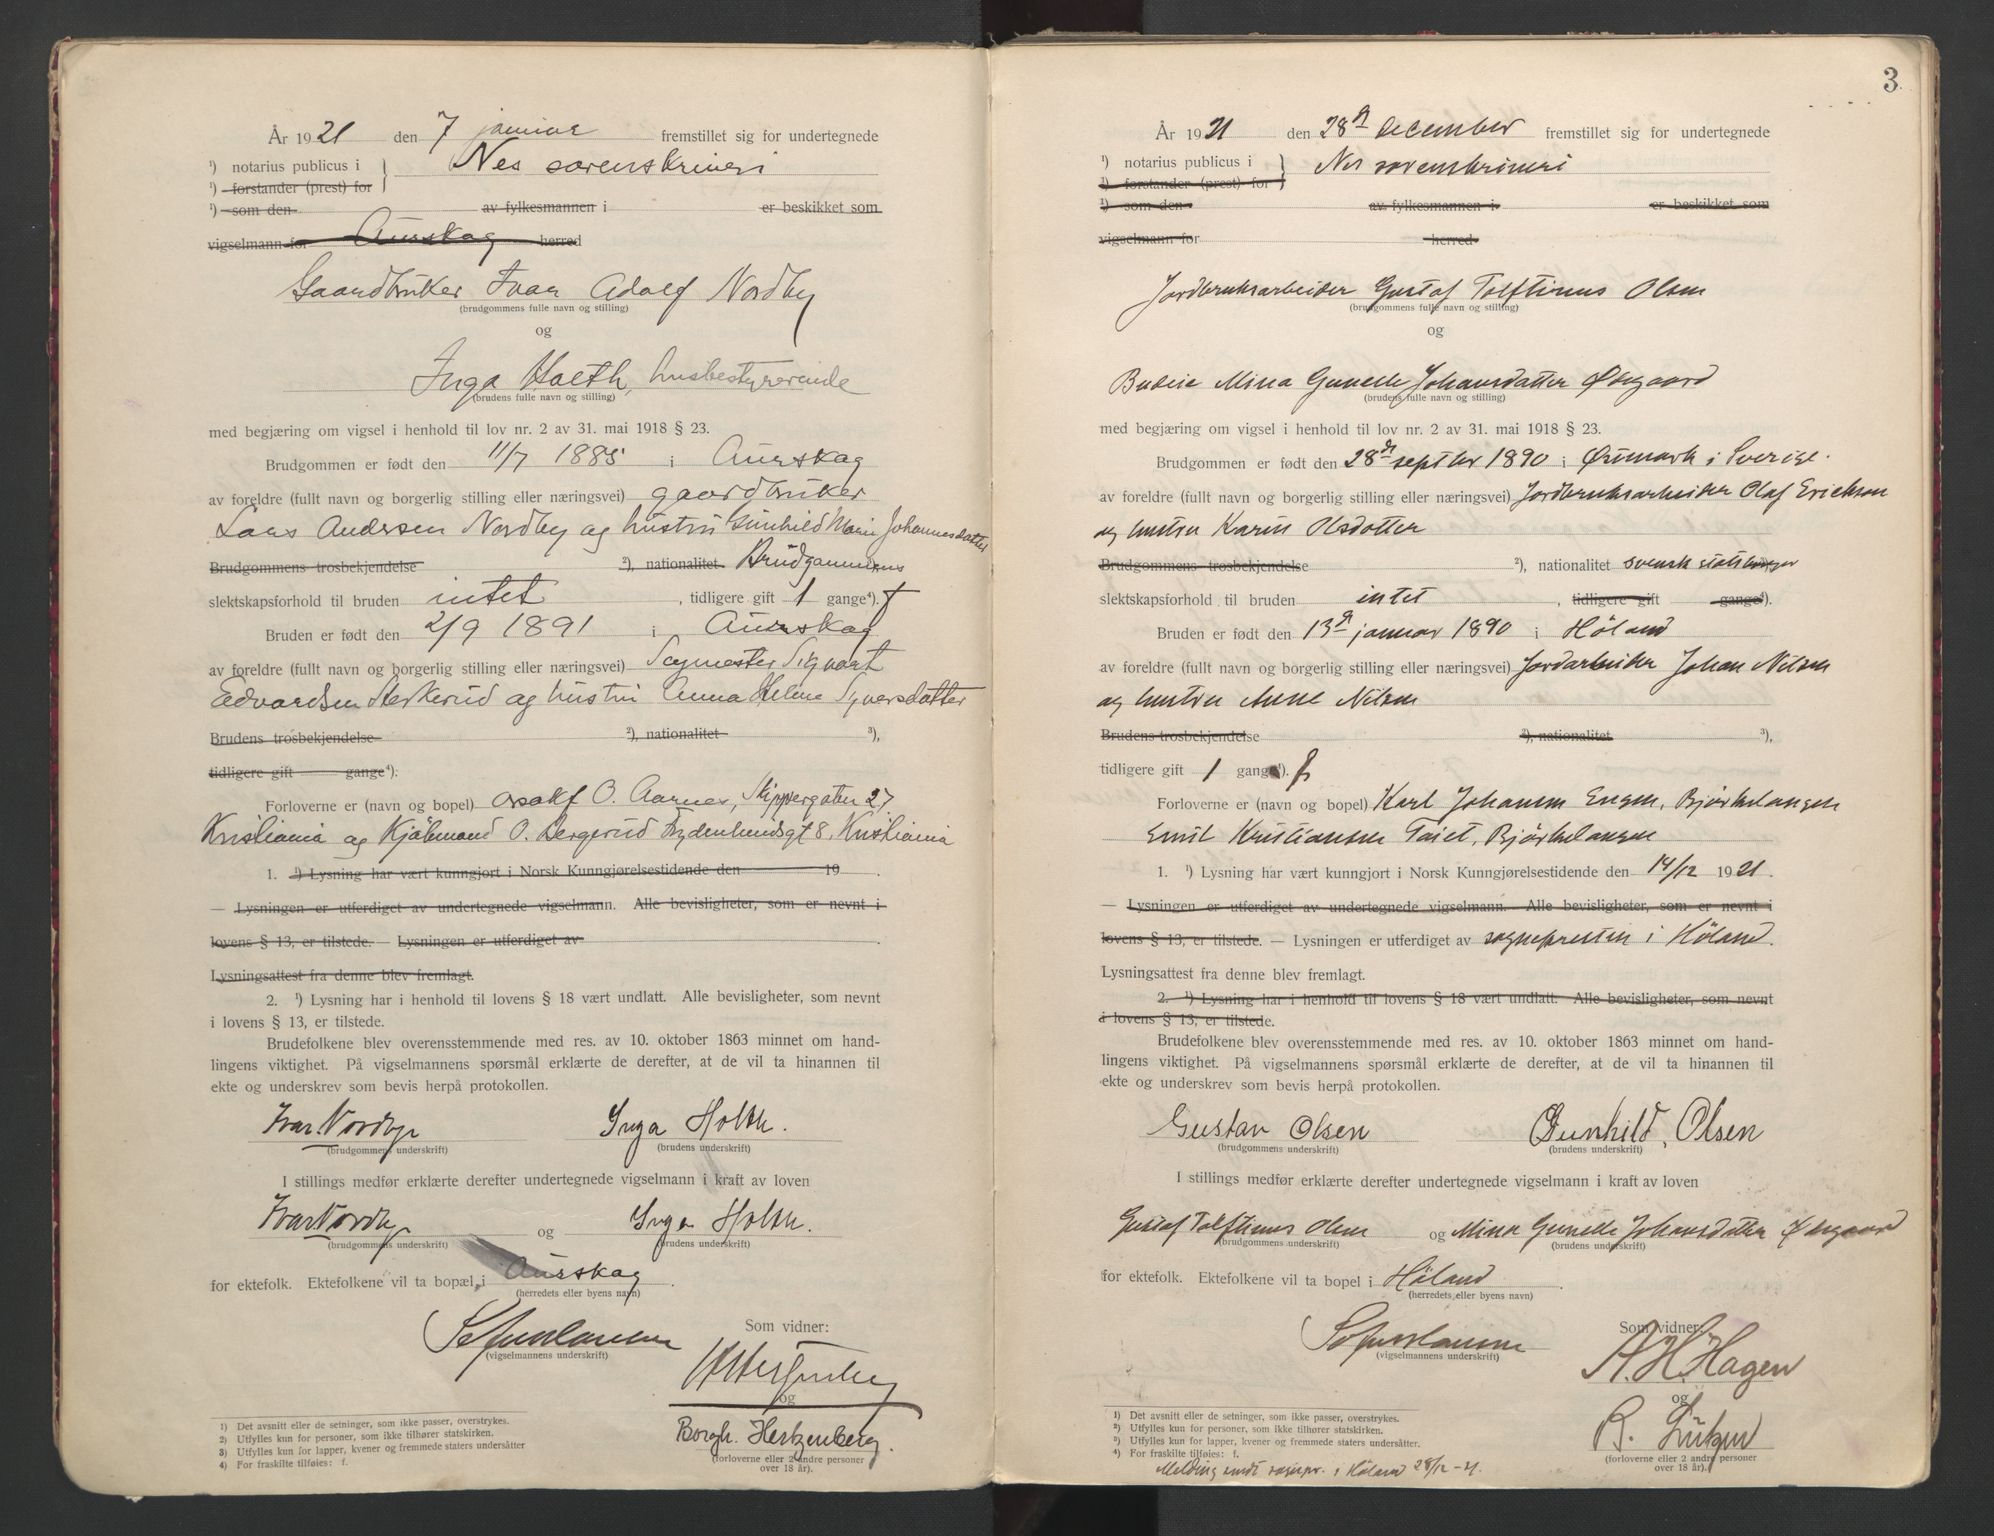 År 1921 den 7 januar fremstillet sig for undertegnede
¹) notarius publicus i Nes sorenskriveri
¹) forstander (prest) for
¹) som den av fylkesmannen i er beskikket som
vigselmann for Aurskag herred
Gaardbruker Ivar Adolf Nordby
(brudgommens fulle navn og stilling)
og
Inga Holth, husbestyrerinde
(brudens fulle navn og stilling)
med begjæring om vigsel i henhold til lov nr. 2 av 31. mai 1918 § 23.
Brudgommen er født den 11/7 1885 i Aurskag
av foreldre (fullt navn og borgerlig stilling eller næringsvei) gaardbruker
Lars Andersen Nordby og hustru Gunhild Marie Johannesdatter
Brudgommens trosbekjendelse ²), nationalitet Brudgommens
slektskapsforhold til bruden intet, tidligere gift 1 gange⁴). f
Bruden er født den 2/9 1891 i Aurskag
av foreldre (fullt navn og borgerlig stilling eller næringsvei) Sagmester Sigvart
Edvardsen Herkerud og hustru Anna Helene Syversdatter
Brudens trosbekjendelse ²), nationalitet ³),
tidligere gift gange⁴).
Forloverne er (navn og bopel) O. Aarnes, Skippergaten 27
Kristiania og Kjølmand O. Bergerud Frydenlundsgt 8, Kristiania
1. ¹) Lysning har vært kunngjort i Norsk Kunngjørelsestidende den 19 .
— Lysningen er utferdiget av undertegnede vigselmann. Alle bevisligheter, som er nevnt i
lovens § 13, er tilstede. — Lysningen er utferdiget av .
Lysningsattest fra denne blev fremlagt.
2. ¹) Lysning har i henhold til lovens § 18 vært undlatt. Alle bevisligheter, som nevnt
i lovens § 13, er tilstede.
Brudefolkene blev overensstemmende med res. av 10. oktober 1863 minnet om hand-
lingens viktighet. På vigselmannens spørsmål erklærte de derefter, at de vil ta hinannen til
ekte og underskrev som bevis herpå protokollen.
Ivar Nordby Inga Holth.
(brudgommens underskrift) (brudens underskrift)
I stillings medfør erklærte derefter undertegnede vigselmann i kraft av loven
Ivar Nordby og Inga Holth.
(brudgommens underskrift) (brudens underskrift)
for ektefolk. Ektefolkene vil ta bopæl i Aurskag .
(herredets eller byens navn)
Som vidner:
(vigselmannens underskrift)
og
Borgh. Hertzenberg.
(forloverne eller 2 andre personer
over 18 år).
1) Det avsnitt eller de setninger, som ikke passer, overstrykes.
2) Utfylles kun for personer, som ikke tilhører statskirken.
3) Utfylles kun for lapper, kvener og fremmede staters undersåtter
4) For fraskilte tilføies: f.
3
År 1921 den 28de december fremstillet sig for undertegnede
¹) notarius publicus i Nes sorenskriveri
¹) forstander (prest) for
¹) som den av fylkesmannen i er beskikket som
vigselmann for herred
Jordbruksarbeider Gustaf Tolftinus Olsen
(brudgommens fulle navn og stilling)
og
Budeie Mina Gunelle Johansdatter Øsgaard
(brudens fulle navn og stilling)
med begjæring om vigsel i henhold til lov nr. 2 av 31. mai 1918 § 23.
Brudgommen er født den 28de septbr 1890 i Øximark i Sverige.
av foreldre (fullt navn og borgerlig stilling eller næringsvei) Jordbruksarbeider Olaf Erickson
og hustru Karin Olsdotter
Brudgommens trosbekjendelse ²), nationalitet svensk statsborger
slektskapsforhold til bruden intet, tidligere gift gange⁴).
Bruden er født den 13de januar 1890 i Høland
av foreldre (fullt navn og borgerlig stilling eller næringsvei) Jordarbeider Johan Nilsen
og hustru Anne Nilsen
Brudens trosbekjendelse ²), nationalitet ³),
tidligere gift 1 gange⁴). f.
Forloverne er (navn og bopel) Karl Johansen Engen, Bjørkelangen
Emil Kristiansen Taiet, Bjørkelangen
1. ¹) Lysning har vært kunngjort i Norsk Kunngjørelsestidende den 14/12 1921.
— Lysningen er utferdiget av undertegnede vigselmann. Alle bevisligheter, som er nevnt i
lovens § 13, er tilstede. — Lysningen er utferdiget av sognepresten i Høland.
Lysningsattest fra denne blev fremlagt.
2. ¹) Lysning har i henhold til lovens § 18 vært undlatt. Alle bevisligheter, som nevnt
i lovens § 13, er tilstede.
Brudefolkene blev overensstemmende med res. av 10. oktober 1863 minnet om hand-
lingens viktighet. På vigselmannens spørsmål erklærte de derefter, at de vil ta hinannen til
ekte og underskrev som bevis herpå protokollen.
Gustav Olsen Gunhild, Olsen
(brudgommens underskrift) (brudens underskrift)
I stillings medfør erklærte derefter undertegnede vigselmann i kraft av loven
Gustaf Tolftinus Olsen og Mina Gunelle Johansdatter Øsgaard
(brudgommens underskrift) (brudens underskrift)
for ektefolk. Ektefolkene vil ta bopel i Høland .
(herredets eller byens navn)
Som vidner:
(vigselmannens underskrift)
A. H. Hagen
og
(forloverne eller 2 andre personer
over 18 år).
1) Det avsnitt eller de setninger, som ikke passer, overstrykes.
2) Utfylles kun for personer, som ikke tilhører statskirken.
3) Utfylles kun for lapper, kvener og fremmede staters undersåtter.
4) For fraskilte tilføies: f.
Melding sendt sognepr. i Høland 28/12-21.